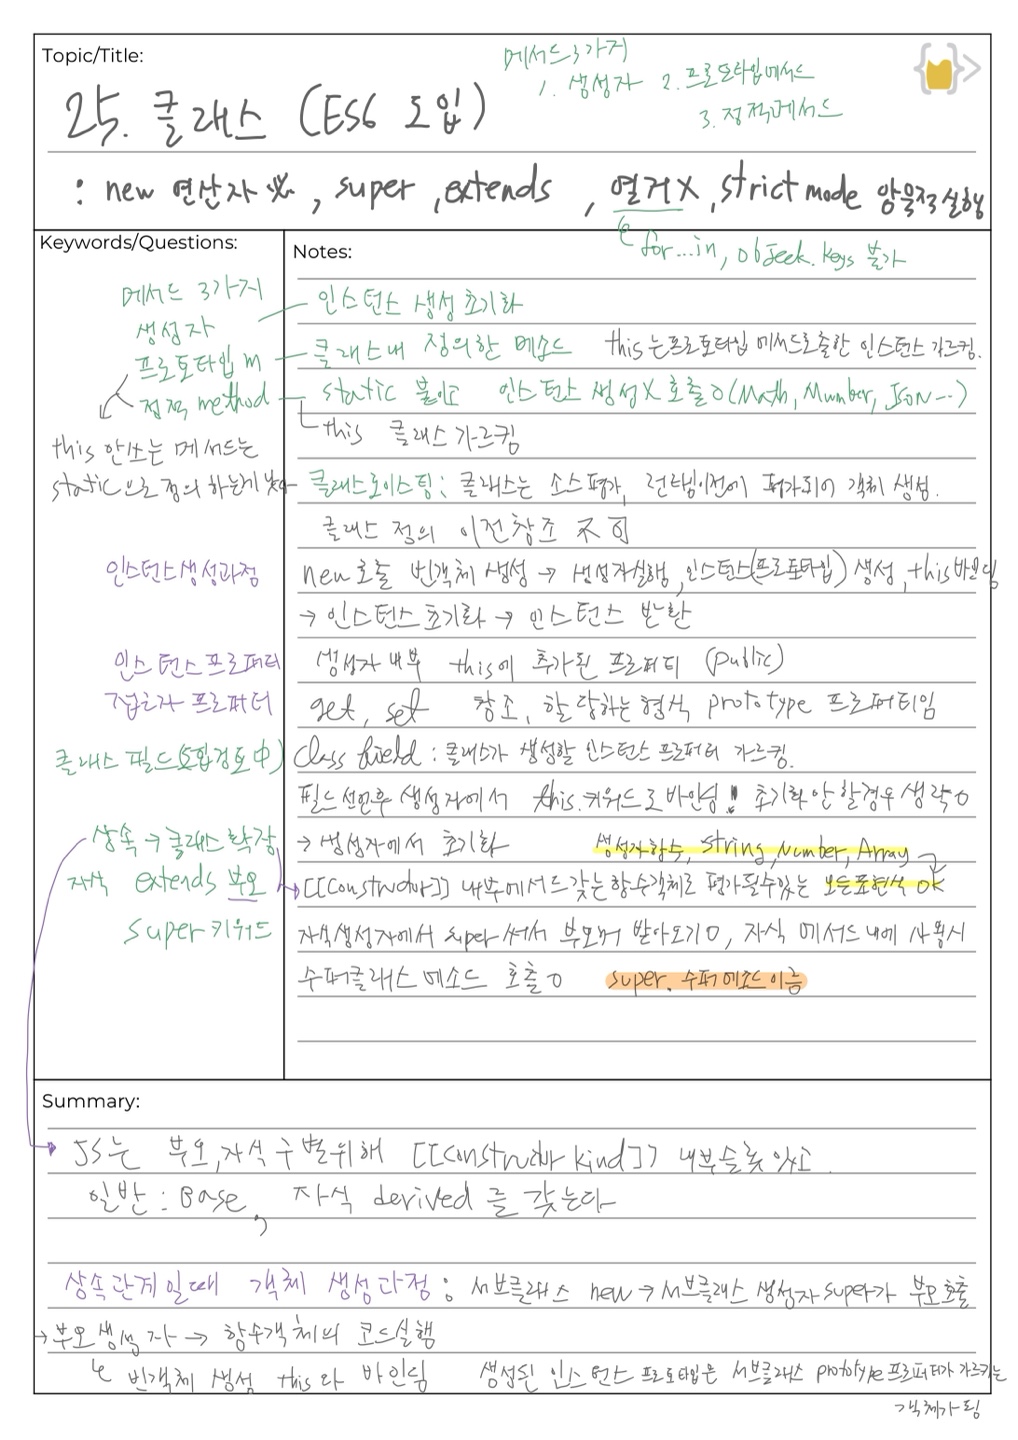 Topic/Title:
메서드 3가지
1. 생성자 2. 프로토타입메서드
3. 정적메서드
25. 클래스 (ES6 도입)
: new 연산자 必, super, extends, 열거X, strict mode 암묵적실행
for...in, object.keys 불가
Keywords/Questions:
Notes:
메서드 3가지
생성자
프로토타입 m
정적 method
this 안쓰는 메서드는
static으로 정의 하는게
인스턴스 생성 초기화
클래스내 정의한 메소드 this는프로토타입 메서드호출한 인스턴스 가르킴.
static 붙임 인스턴스 생성X 호출O (Math, Number, JSON …)
this 클래스 가르킴
클래스호이스팅: 클래스는 소스평가, 런타임이전에 평가되어 객체 생성.
클래스 정의 이전참조 不可
인스턴스생성과정
new 호출 빈객체 생성 → 생성자실행, 인스턴스(프로토타입) 생성, this바인딩
→ 인스턴스초기화 → 인스턴스 반환
인스턴스프로퍼티
생성자 내부 this에 추가된 프로퍼티 (public)
접근자 프로퍼티
get, set 참조, 할당하는 형식 prototype 프로퍼티임
클래스 필드
class field : 클래스가 생성할 인스턴스 프로퍼티 가르킴.
필드선언후 생성자에서 this.키워드로 바인딩!! 초기화 안 할경우 생략O
→ 생성자에서 초기화 생성자함수, String, Number, Array
상속 → 클래스 확장
자식 extends 부모
[[Construct]] 내부메서드갖는 함수객체로 평가될수있는 모든표현식 OK
super 키워드
자식생성자에서 super써서 부모꺼 받아오기O, 자식 메서드내에 사용시
수퍼클래스 메소드 호출O super. 수퍼메소드이름
Summary:
JS는 부모, 자식 구별위해 [[Constructor kind]] 내부슬롯있고
일반 : Base, 자식 derived 를 갖는다
상속관계일때 객체 생성과정 : 서브클래스 new → 서브클래스 생성자 super가 부모호출
→ 부모생성자 → 함수객체의 코드실행
빈객체 생성 this와 바인딩 생성된 인스턴스 프로토타입은 서브클래스 prototype 프로퍼티가 가르키는
객체가됨